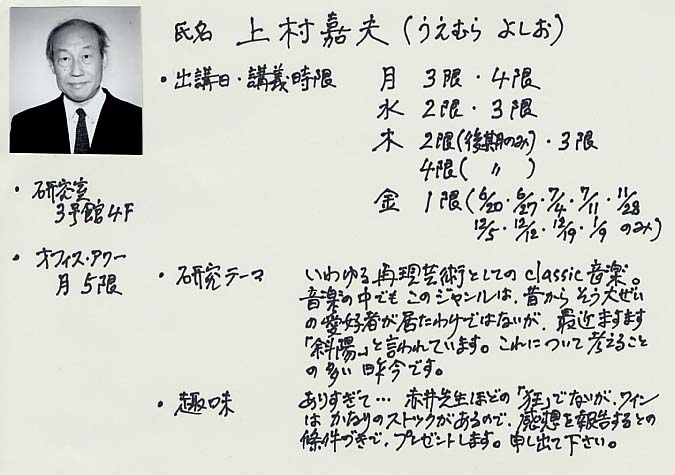 氏名 上村嘉夫(うえむら よしお)
・出講日・講義時限 月 3限・4限
水 2限・3限
木 2限(後期のみ)・3限
4限( 〃 )
金 1限(6/20・6/27・7/4・7/11・11/28
12/5・12/12・12/19・1/9 のみ)
・研究室
3号館4F
・オフィス・アワー
月 5限
・研究テーマ いわゆる再現芸術としてのclassic音楽。
音楽の中でもこのジャンルは、昔からそう大ぜい
の愛好者が居たわけではないが、最近ますます
「斜陽」と言われています。これについて考えること
の多い昨今です。
・趣味 ありすぎて… 赤井先生ほどの「狂」でないが、ワイン
はかなりのストックがあるので、感想を報告するとの
條件づきで、プレゼントします。申し出て下さい。